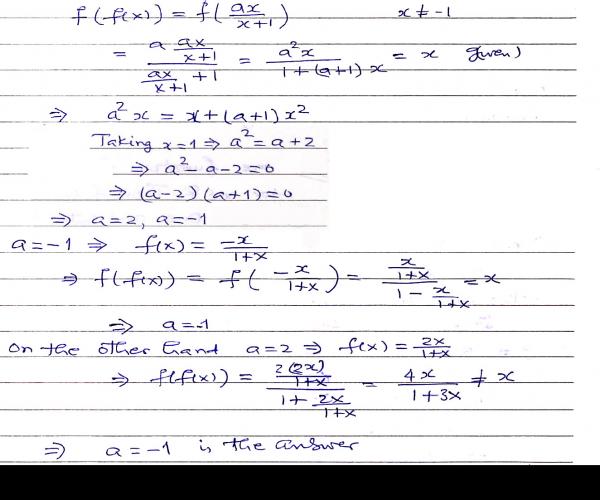 f(f(x)) = f(ax/(x+1))    x ≠ -1
= (a ax/(x+1))/(ax/(x+1) + 1) = a²x/(1+(a+1)x) = x given)
⇒ a²x = x+(a+1)x²
Taking x=1 ⇒ a² = a+2
⇒ a²-a-2=0
⇒ (a-2)(a+1)=0
⇒ a=2, a=-1
a=-1 ⇒ f(x) = -x/(1+x)
⇒ f(f(x)) = f(-x/(1+x)) = (x/(1+x))/(1 - x/(1+x)) = x
⇒ a=-1
on the other hand a=2 ⇒ f(x) = 2x/(1+x)
⇒ f(f(x)) = (2(2x)/(1+x))/(1 + 2x/(1+x)) = 4x/(1+3x) ≠ x
⇒ a=-1 is the answer